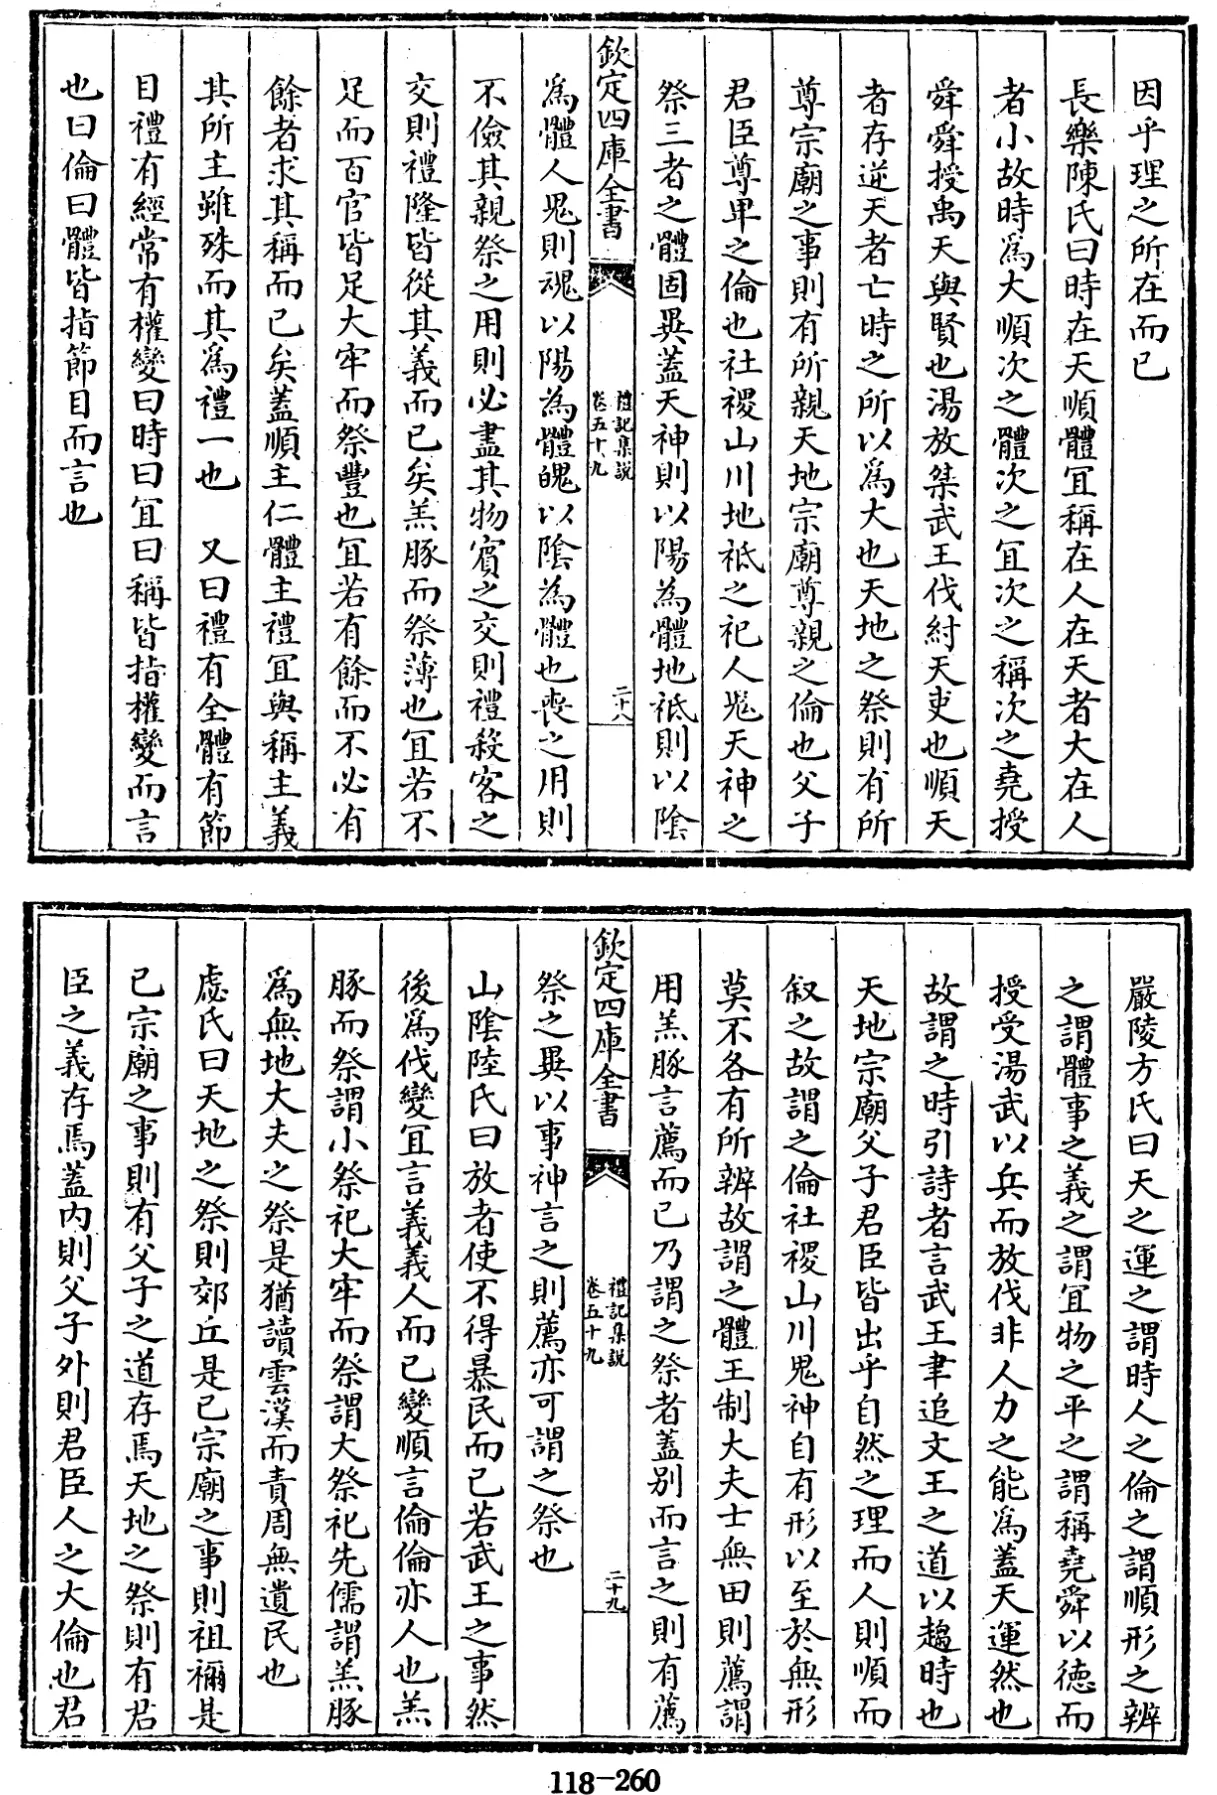 因乎理之所在而已
長樂陳氏曰時在天順體宜稱在人在天者大在人
者小故時爲大順次之體次之宜次之稱次之堯授
舜舜授禹天與賢也湯放桀武王伐紂天吏也順天
者存逆天者亡時之所以爲大也天地之祭則有所
尊宗廟之事則有所親天地宗廟尊親之倫也父子
君臣尊卑之倫也社稷山川地祗之祀人鬼天神之
祭三者之體固異蓋天神則以陽為體地祗則以陰
欽定四庫全書
禮記集說
卷五十九
二十八
爲體人鬼則魂以陽為體魄以陰為體也喪之用則
不儉其親祭之用則必盡其物賓之交則禮殺客之
交則禮隆皆從其義而已矣羔豚而祭薄也宜若不
足而百官皆足大牢而祭豐也宜若有餘而不必有
餘者求其稱而已矣蓋順主仁體主禮宜與稱主義
其所主雖殊而其爲禮一也 又曰禮有全體有節
目禮有經常有權變曰時曰宜曰稱皆指權變而言
也曰倫曰體皆指節目而言也
嚴陵方氏曰天之運之謂時人之倫之謂順形之辨
之謂體事之義之謂宜物之平之謂稱堯舜以德而
授受湯武以兵而放伐非人力之能爲蓋天運然也
故謂之時引詩者言武王聿追文王之道以趨時也
天地宗廟父子君臣皆出乎自然之理而人則順而
叙之故謂之倫社稷山川鬼神自有形以至於無形
莫不各有所辨故謂之體王制大夫士無田則薦謂
用羔豚言薦而已乃謂之祭者蓋别而言之則有薦
欽定四庫全書
禮記集說
卷五十九
二十九
祭之異以事神言之則薦亦可謂之祭也
山陰陸氏曰放者使不得暴民而已若武王之事然
後爲伐變宜言義義人而已變順言倫倫亦人也羔
豚而祭謂小祭祀大牢而祭謂大祭祀先儒謂羔豚
爲無地大夫之祭是猶讀雲漢而責周無遺民也
慮氏曰天地之祭則郊丘是已宗廟之事則祖禰是
已宗廟之事則有父子之道存焉天地之祭則有君
臣之義存焉蓋内則父子外則君臣人之大倫也君
118-260